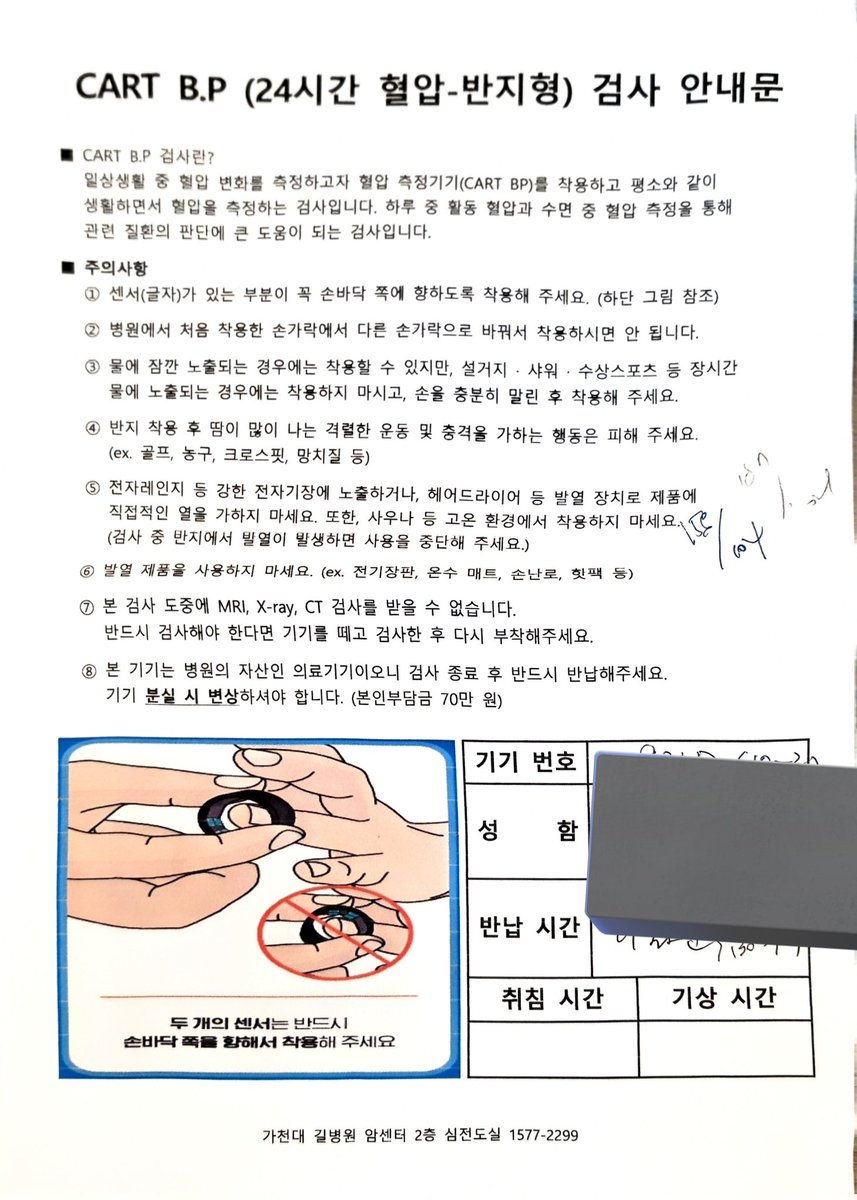 CART B.P (24시간 혈압-반지형) 검사 안내문
■ CART B.P 검사란?
일상생활 중 혈압 변화를 측정하고자 혈압 측정기기(CART BP)를 착용하고 평소와 같이
생활하면서 혈압을 측정하는 검사입니다. 하루 중 활동 혈압과 수면 중 혈압 측정을 통해
관련 질환의 판단에 큰 도움이 되는 검사입니다.
■ 주의사항
① 센서(글자)가 있는 부분이 꼭 손바닥 쪽에 향하도록 착용해 주세요. (하단 그림 참조)
② 병원에서 처음 착용한 손가락에서 다른 손가락으로 바꿔서 착용하시면 안 됩니다.
③ 물에 잠깐 노출되는 경우에는 착용할 수 있지만, 설거지 · 샤워 · 수상스포츠 등 장시간
물에 노출되는 경우에는 착용하지 마시고, 손을 충분히 말린 후 착용해 주세요.
④ 반지 착용 후 땀이 많이 나는 격렬한 운동 및 충격을 가하는 행동은 피해 주세요.
(ex. 골프, 농구, 크로스핏, 망치질 등)
⑤ 전자레인지 등 강한 전자기장에 노출하거나, 헤어드라이어 등 발열 장치로 제품에
직접적인 열을 가하지 마세요. 또한, 사우나 등 고온 환경에서 착용하지 마세요.
(검사 중 반지에서 발열이 발생하면 사용을 중단해 주세요.)
⑥ 발열 제품을 사용하지 마세요. (ex. 전기장판, 온수 매트, 손난로, 핫팩 등)
⑦ 본 검사 도중에 MRI, X-ray, CT 검사를 받을 수 없습니다.
반드시 검사해야 한다면 기기를 떼고 검사한 후 다시 부착해주세요.
⑧ 본 기기는 병원의 자산인 의료기기이오니 검사 종료 후 반드시 반납해주세요.
기기 분실 시 변상하셔야 합니다. (본인부담금 70만 원)
두 개의 센서는 반드시
손바닥 쪽을 향해서 착용해 주세요
기기 번호
성 함
반납 시간
취침 시간 기상 시간
가천대 길병원 암센터 2층 심전도실 1577-2299